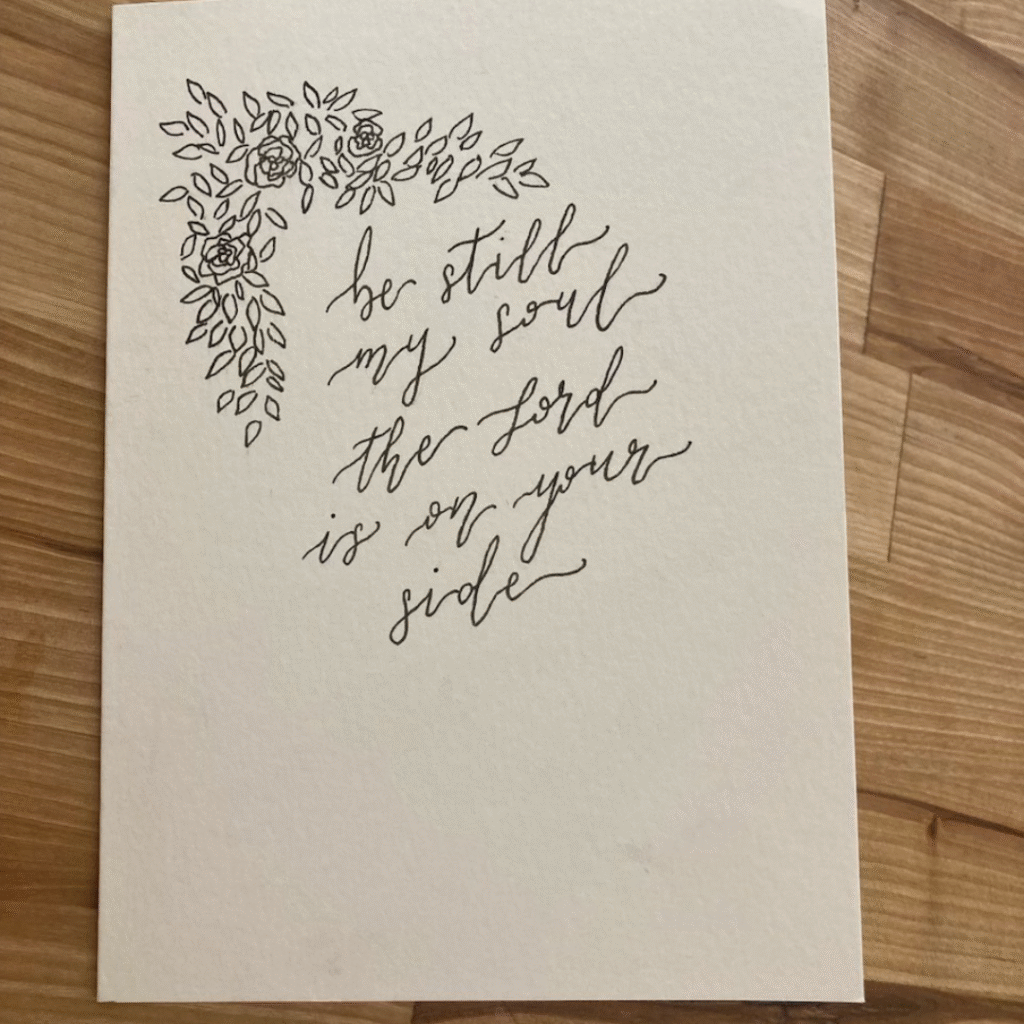 be still
my soul
the Lord
is on your
side